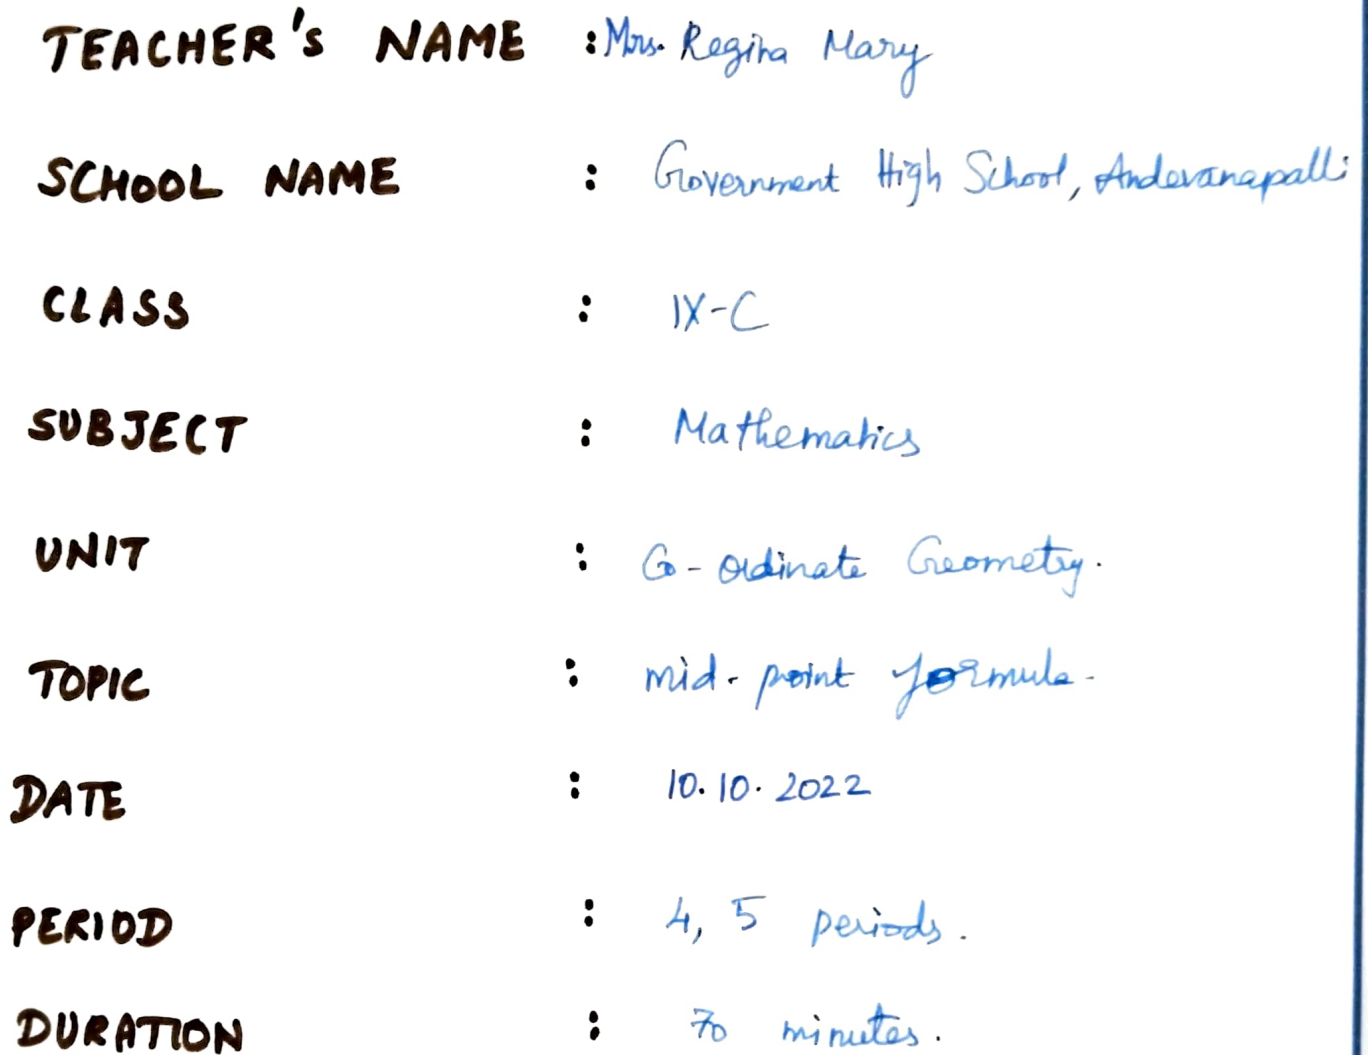 TEACHER's NAME : Mrs. Regina Mary
SCHOOL NAME : Government High School, Andevanapalli
CLASS : IX-C
SUBJECT : Mathematics
UNIT : Co-ordinate Geometry.
TOPIC : mid-point formula-
DATE : 10.10.2022
PERIOD : 4, 5 periods.
DURATION : 70 minutes.